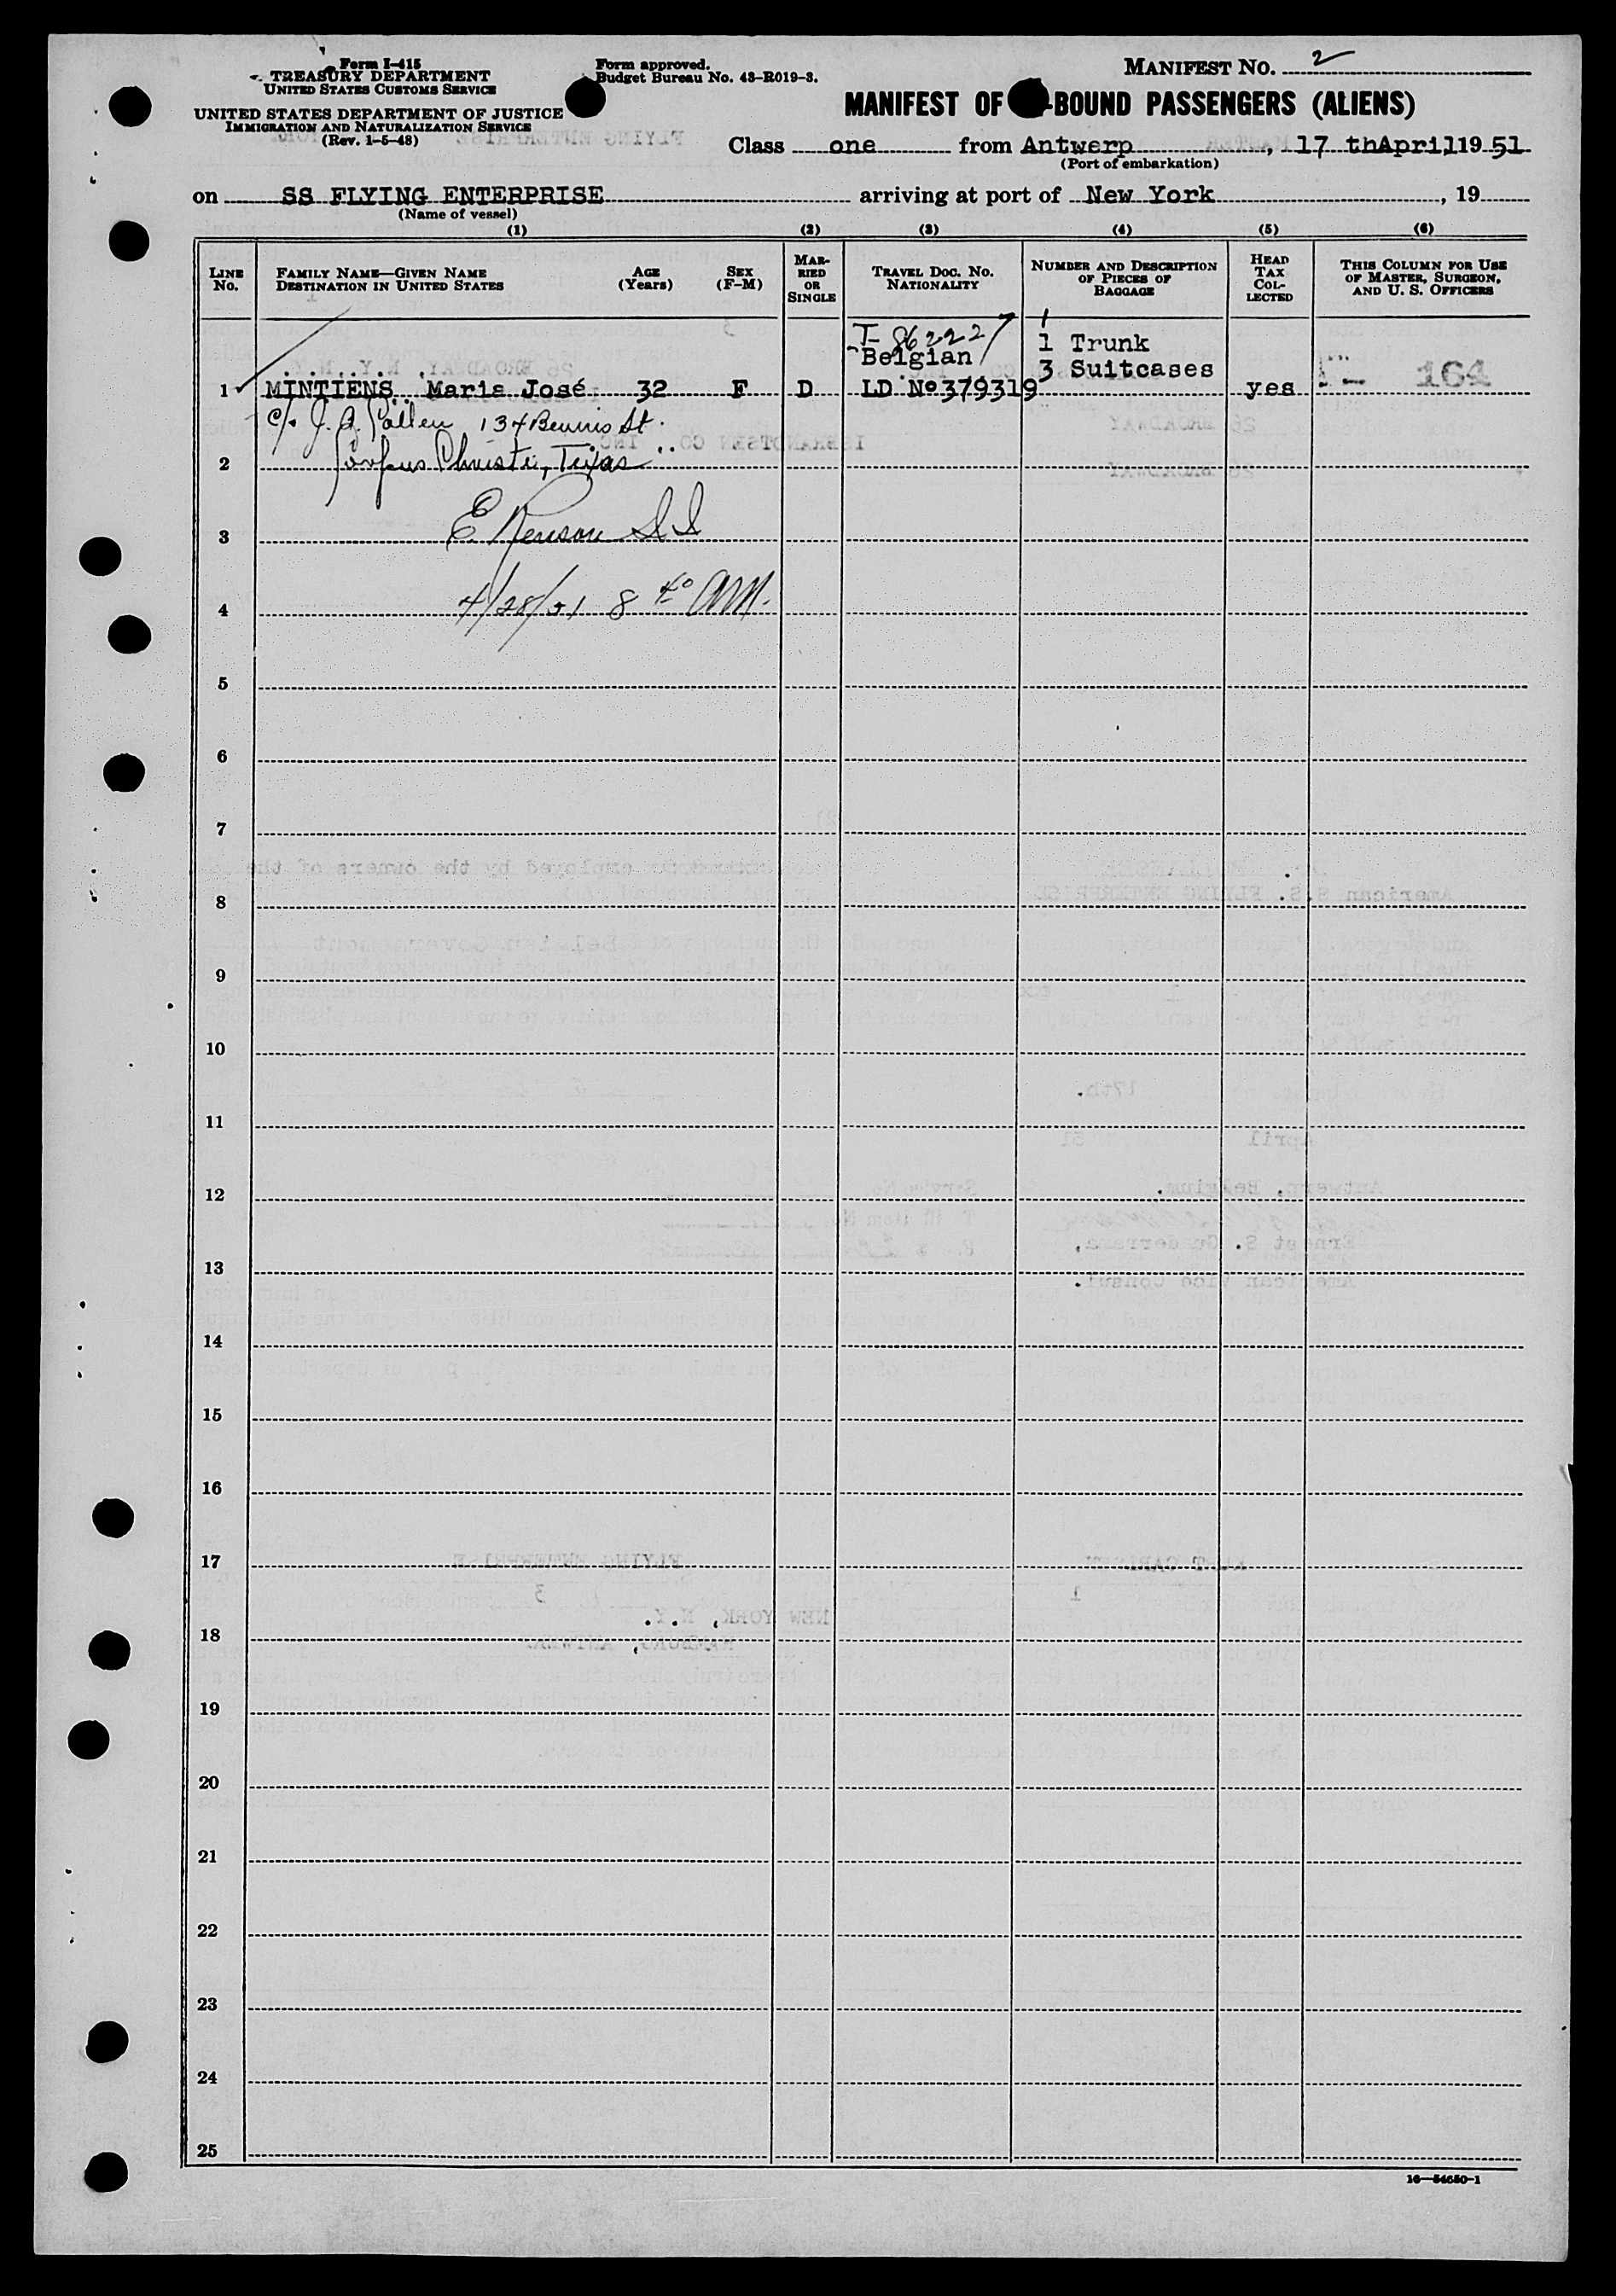 Form I-415
TREASURY DEPARTMENT
UNITED STATES CUSTOMS SERVICE
UNITED STATES DEPARTMENT OF JUSTICE
IMMIGRATION AND NATURALIZATION SERVICE
(Rev. 1-5-48)
Form approved.
Budget Bureau No. 43-R019-3.
MANIFEST NO. 2
MANIFEST OF -BOUND PASSENGERS (ALIENS)
Class one from Antwerp, 17 thApril1951
(Port of embarkation)
on SS FLYING ENTERPRISE arriving at port of New York, 19
(Name of vessel)
(1) (2) (3) (4) (5) (6)
LINE No. FAMILY NAME—GIVEN NAME DESTINATION IN UNITED STATES AGE (Years) SEX (F-M) MARRIED OR SINGLE TRAVEL DOC. NO. NATIONALITY NUMBER AND DESCRIPTION OF PIECES OF BAGGAGE HEAD TAX COLLECTED THIS COLUMN FOR USE OF MASTER, SURGEON, AND U. S. OFFICERS
I-86222
Belgian 1 Trunk
3 Suitcases
1 MINTIENS Maria José 32 F D LD No 379319 yes 164
c/o J. A. 134 St.
2 Corpus Christi, Texas
3 E.
4 4/28/51 8 40 AM.
5
6
7
8
9
10
11
12
13
14
15
16
17
18
19
20
21
22
23
24
25
16-54650-1